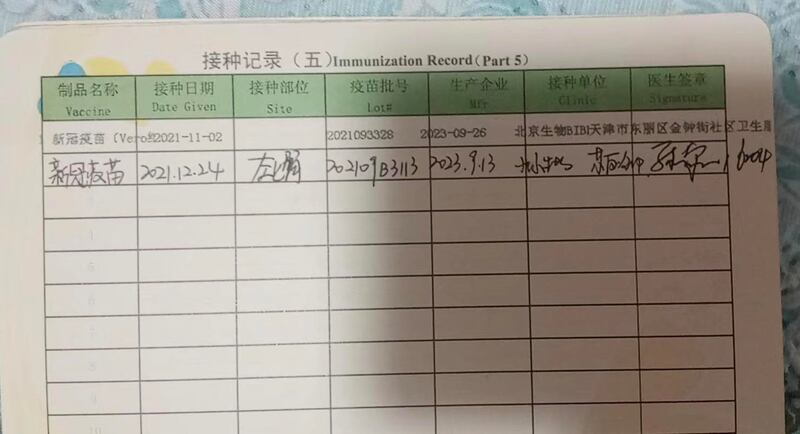 接种记录（五）Immunization Record (Part 5)
制品名称 接种日期 接种部位 疫苗批号 生产企业 接种单位 医生签章
Vaccine Date Given Site Lot# Mfr Clinic Signature
新冠疫苗（Vero 2021-11-02 2021093328 2023-09-26 北京生物BIBI天津市东丽区金钟街社区卫生
新冠疫苗 2021.12.24 左上臂 202109B3113 2023.9.13
4
5
6
7
8
9
10